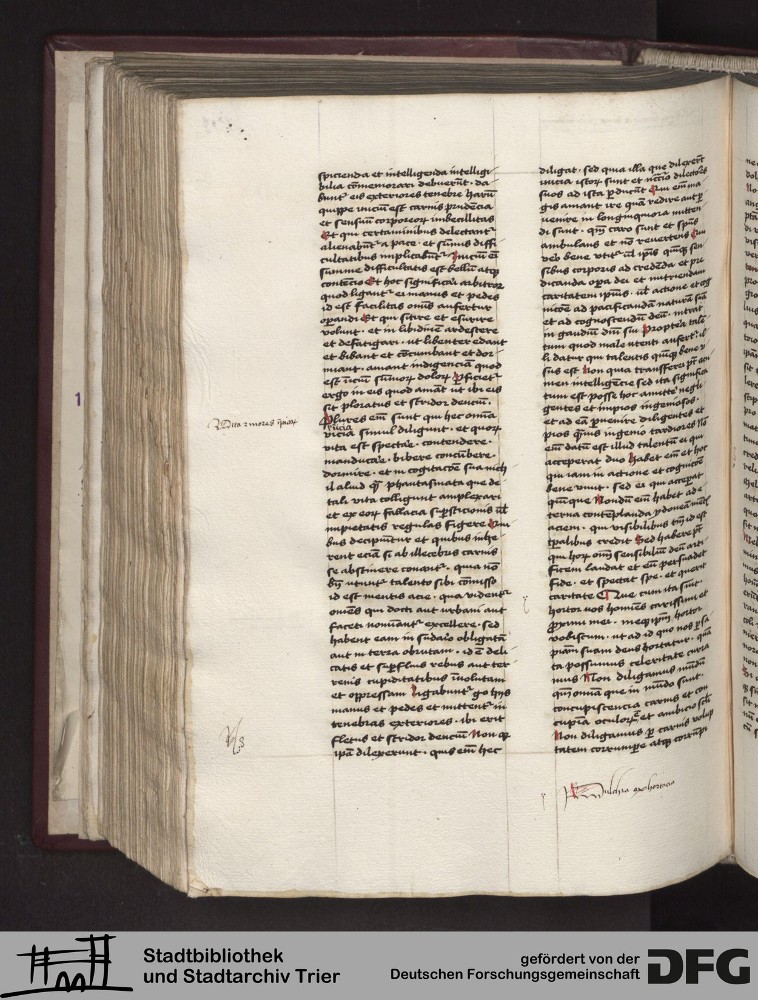 spicienda et intelligenda intelligi
bilia cōmemorari debuerūt · da
bunt᷑ eis exteriores tenebre harū
quippe iniciū est carnis prudēcia
et sensuū corporeoꝝ imbecillitas
Et qui certaminibus delectant᷑
alienabūt᷑ a pace · et sūmis diffi
cultatibus implicabūt᷑ Iniciū em̄
summe difficultatis est bellū atqꝫ
contēcio Et hoc significai arbitror
quod ligant᷑ ei manus et pedes
id est facilitas omīs aufertur
operandi Et qui sitire et esurire
volunt · et in libidinē ardestere
et defatigari · ut libenter edant
et bibant et cōcumbant et dor
miant · amant indigenciā quod
est iniciū sūmoꝝ doloꝝ Perficiet᷑
ergo in eis quod amāt ut ibi eis
sit ploratus et stridor dencīū ·
Plures em̄ sunt qui hec omīa
vicia simul diligunt · et quoꝝ
vita est spectāe · contendere ·
manducāe · bibere concūbere ·
dormire · et in cogitacōe sua nich
il aliud qꝫ phantasmata que de
tali vita colligunt amplexari
et ex eoꝝ fallacia suꝑsticionis uł
impietatis regulas figere Qui
bus decipiūtur et quibus inhe
rent eciā si ab illecebus carnis
se abstinere conant᷑ · quia nō
bn̄ utunt᷑ talento sibi cōmisso
id est mentis acie · qua vident᷑
omēs qui docti aut urbani aut
faceti nominant᷑ excellere · sed
habent eam in sudāio obligatā
aut in terra obrutam · id ē deli
catis et suꝑfluis rebus aut ter
renis cupiditatibus īuolutam
et oppressam Ligabunt᷑ gͦ hijs
manus et pedes et mittent᷑ in
tenebras exteriores · ibi erit
fletus et stridor dencīū Non qꝫ
ip̄a dilexerunt · quis em̄ hec
Vita ⁊ mores
diligat · sed quia illa que dilexerūt
inicia istoꝝ sunt et nccīo dilectōres
suos ad ista ꝑducūt Qui em̄ ma
gis amant ire quā redire aut ꝑ
uenire in longinquiora mitten
di sunt · qm̄ caro sunt et spūs
ambulans et nō reuertens Qui
vero bene utit᷑ uł ip̄is quīqꝫ sen
sibus corporis ad credēda et pre
dicanda opa dei et nutriendam
caritatem ipīus · uł actione et cog
nicōe ad pacificandā naturā suā
et ad cognoscendū deū · intrat
in gaudiū dn̄i sui Propterea talē
tum quod male utenti aufert᷑ · il
li datur qui talentis quīqꝫ bene v
sus est Non quia transferri pt̄ acu
men intelligēcie sed ita significa
tum est posse hoc amitte᷑ negli
gentes et impios ingeniosos ·
et ad eā ꝑuenire diligentes et
pios qͣmuis ingenio tardiores Nō
em̄ datū est illud talentū ei qui
acceperat duo Habet em̄ et hoc
qui iam in actione et cognicōe
bene viuit · sed ei qui acceperat
quīque Nondū em̄ habet ad e
terna contēplanda ydoneā mētis
aciem · qui visibilibus tm̄ id est
tpalibus credit Sed habere pt̄
qui horꝫ omīū sensibiliū deū arti
ficem laudat et eū persuadet
fide · et spectat spe · et querit
caritate Que cum ita sint ·
hortor vos homīēs carissimi et
proximi mei · meqꝫ ipm̄ hortor
vobiscum · ut ad id quo nos ꝑ sa
piām suam deus hortatur · quā
ta possumus celeritate curra
mus Non diligamus mūdū
qm̄ omīa que in mūdo sunt ·
concupiscencia carnis et con
cupīa oculoꝝ et ambicio scl̄i
Non diligamus ꝑ carnis volup
tatem corrumpere atqꝫ corrūpi
Pulchra exhortacio
1
Stadtbibliothek
und Stadtarchiv Trier
gefördert von der
Deutschen Forschungsgemeinschaft
DFG